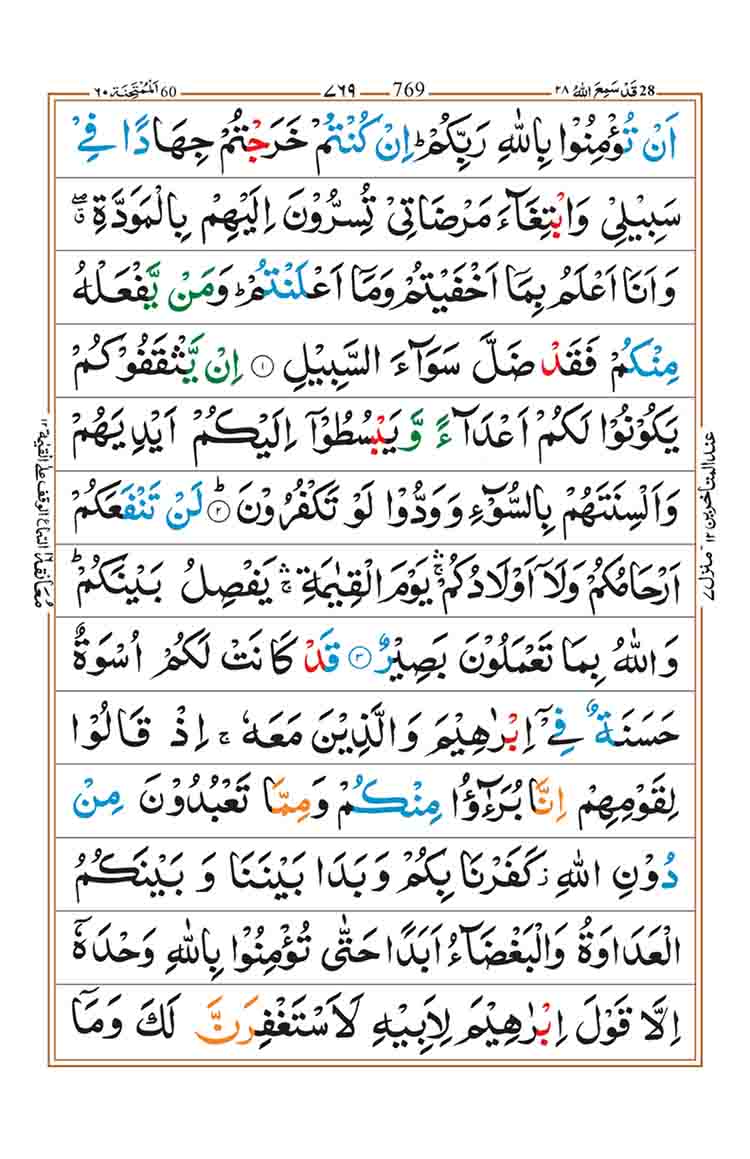 28 قَدْ سَمِعَ اللهُ ٢٨ 769 ٧٦٩ 60 اَلْمُمْتَحِنَة ٦٠
اَنْ تُؤْمِنُوْا بِاللّٰهِ رَبِّكُمْ ؕ اِنْ كُنْتُمْ خَرَجْتُمْ جِهَادًا فِيْ
سَبِيْلِيْ وَابْتِغَآءَ مَرْضَاتِيْ تُسِرُّوْنَ اِلَيْهِمْ بِالْمَوَدَّةِ ۖق
وَاَنَا اَعْلَمُ بِمَاۤ اَخْفَيْتُمْ وَمَاۤ اَعْلَنْتُمْ ؕ وَمَنْ يَّفْعَلْهُ
مِنْكُمْ فَقَدْ ضَلَّ سَوَآءَ السَّبِيْلِ ۝١ اِنْ يَّثْقَفُوْكُمْ
يَكُوْنُوْا لَكُمْ اَعْدَآءً وَّ يَبْسُطُوْۤا اِلَيْكُمْ اَيْدِيَهُمْ
وَاَلْسِنَتَهُمْ بِالسُّوْٓءِ وَوَدُّوْا لَوْ تَكْفُرُوْنَ ؕ۝٢ لَنْ تَنْفَعَكُمْ
اَرْحَامُكُمْ وَلَاۤ اَوْلَادُكُمْ ۛۚ يَوْمَ الْقِيٰمَةِ ۛۚ يَفْصِلُ بَيْنَكُمْ ؕ
وَاللّٰهُ بِمَا تَعْمَلُوْنَ بَصِيْرٌ ۝٣ قَدْ كَانَتْ لَكُمْ اُسْوَةٌ
حَسَنَةٌ فِيْۤ اِبْرٰهِيْمَ وَالَّذِيْنَ مَعَهٗ ۚ اِذْ قَالُوْا
لِقَوْمِهِمْ اِنَّا بُرَءٰٓؤُا مِنْكُمْ وَمِمَّا تَعْبُدُوْنَ مِنْ
دُوْنِ اللّٰهِ ؗ كَفَرْنَا بِكُمْ وَبَدَا بَيْنَنَا وَ بَيْنَكُمُ
الْعَدَاوَةُ وَالْبَغْضَآءُ اَبَدًا حَتّٰى تُؤْمِنُوْا بِاللّٰهِ وَحْدَهٗۤ
اِلَّا قَوْلَ اِبْرٰهِيْمَ لِاَبِيْهِ لَاَسْتَغْفِرَنَّ لَكَ وَمَاۤ
عند المتأخرين ١٢
منزل ٧
معانقة